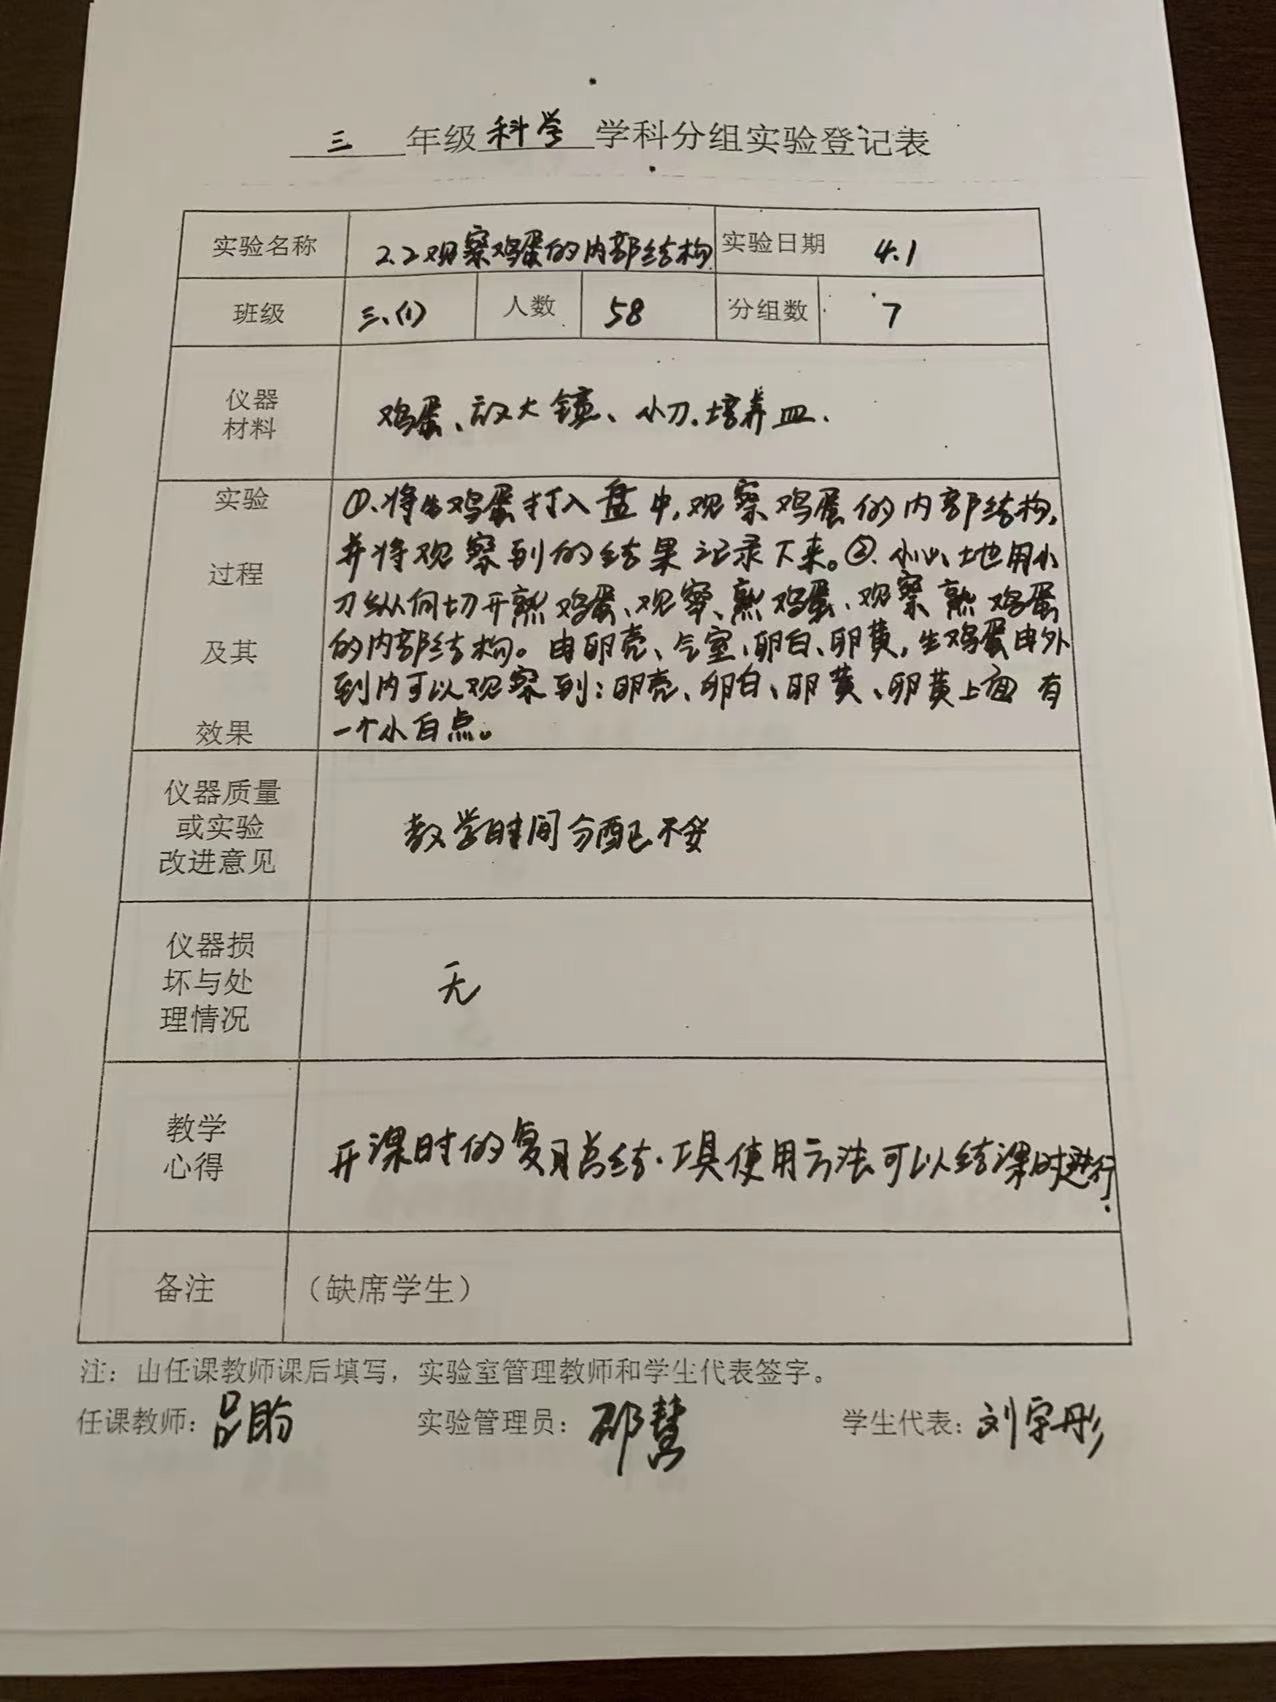 三 年级 科学 学科分组实验登记表
实验名称 2.2观察鸡蛋的内部结构 实验日期 4.1
班级 三、(1) 人数 58 分组数 7
仪器
材料
鸡蛋、放大镜、小刀、培养皿.
实验
过程
及其
效果
①、将生鸡蛋打入盘中,观察鸡蛋的内部结构,
并将观察到的结果记录下来。②、小心地用小
刀纵向切开熟鸡蛋、观察、熟鸡蛋、观察熟鸡蛋
的内部结构。由卵壳、气室、卵白、卵黄,生鸡蛋由外
到内可以观察到:卵壳、卵白、卵黄、卵黄上面有
一个小白点。
仪器质量
或实验
改进意见
教学时间分配不妥
仪器损
坏与处
理情况
无
教学
心得
开课时的复习总结.工具使用方法可以结课时进行.
备注 (缺席学生)
注:山任课教师课后填写,实验室管理教师和学生代表签字。
任课教师:吕盼 实验管理员:邵慧 学生代表:刘宇彤